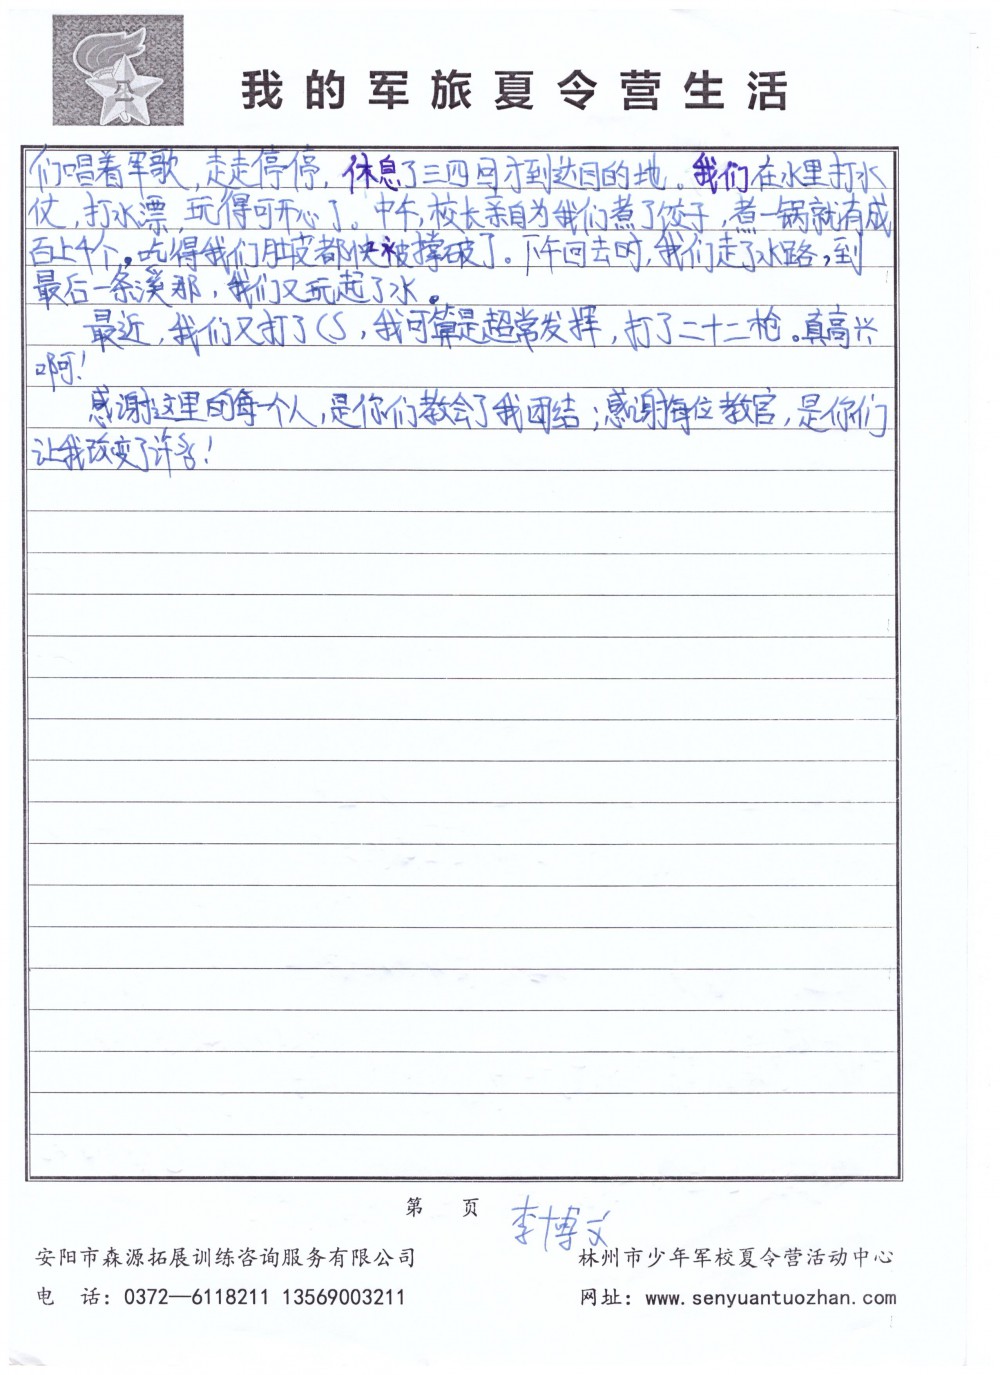 我的军旅夏令营生活
们唱着军歌，走走停停，休息了三四回才到达目的地。我们在水里打水
仗，打水漂，玩得可开心了。中午，校长亲自为我们煮了饺子，煮一锅就有成
百上千个。吃得我们肚皮都快被撑破了。下午回去时，我们走了水路，到
最后一条溪那，我们又玩起了水。
最近，我们又打了CS，我可算是超常发挥，打了二十二枪。真高兴
啊！
感谢这里的每一个人，是你们教会了我团结；感谢每位教官，是你们
让我改变了许多！
第 页 李博文
安阳市森源拓展训练咨询服务有限公司 林州市少年军校夏令营活动中心
电 话：0372—6118211 13569003211 网址：www.senyuantuozhan.com